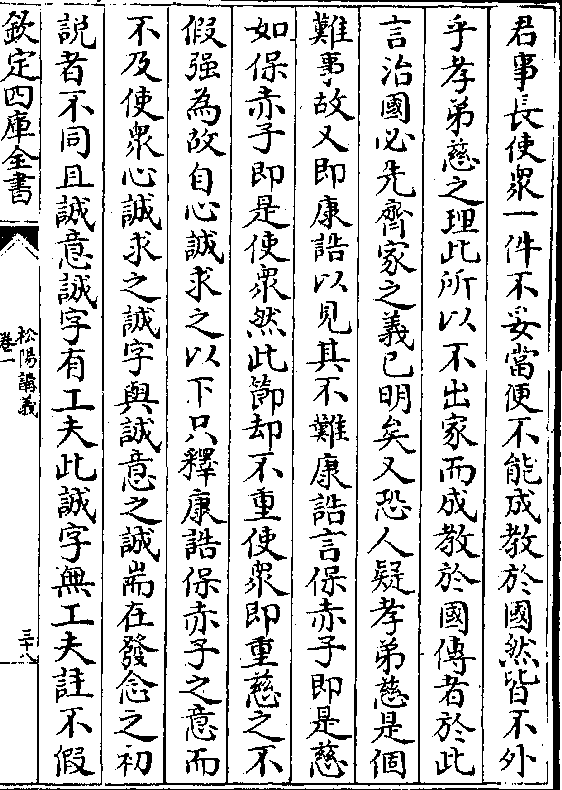 君事長使衆一件不妥當便不能成教於國然皆不外
乎孝弟慈之理此所以不出家而成教於國傳者於此
言治國必先齊家之義已明矣又恐人疑孝弟慈是個
難事故又即康誥以見其不難康誥言保赤子即是慈
如保赤子即是使衆然此節却不重使衆即重慈之不
假强為故自心誠求之以下只釋康誥保赤子之意而
不及使衆心誠求之誠字與誠意之誠耑在發念之初
説者不同且誠意誠字有工夫此誠字無工夫註不假
欽定四庫全書
松陽講義
卷一
三十八